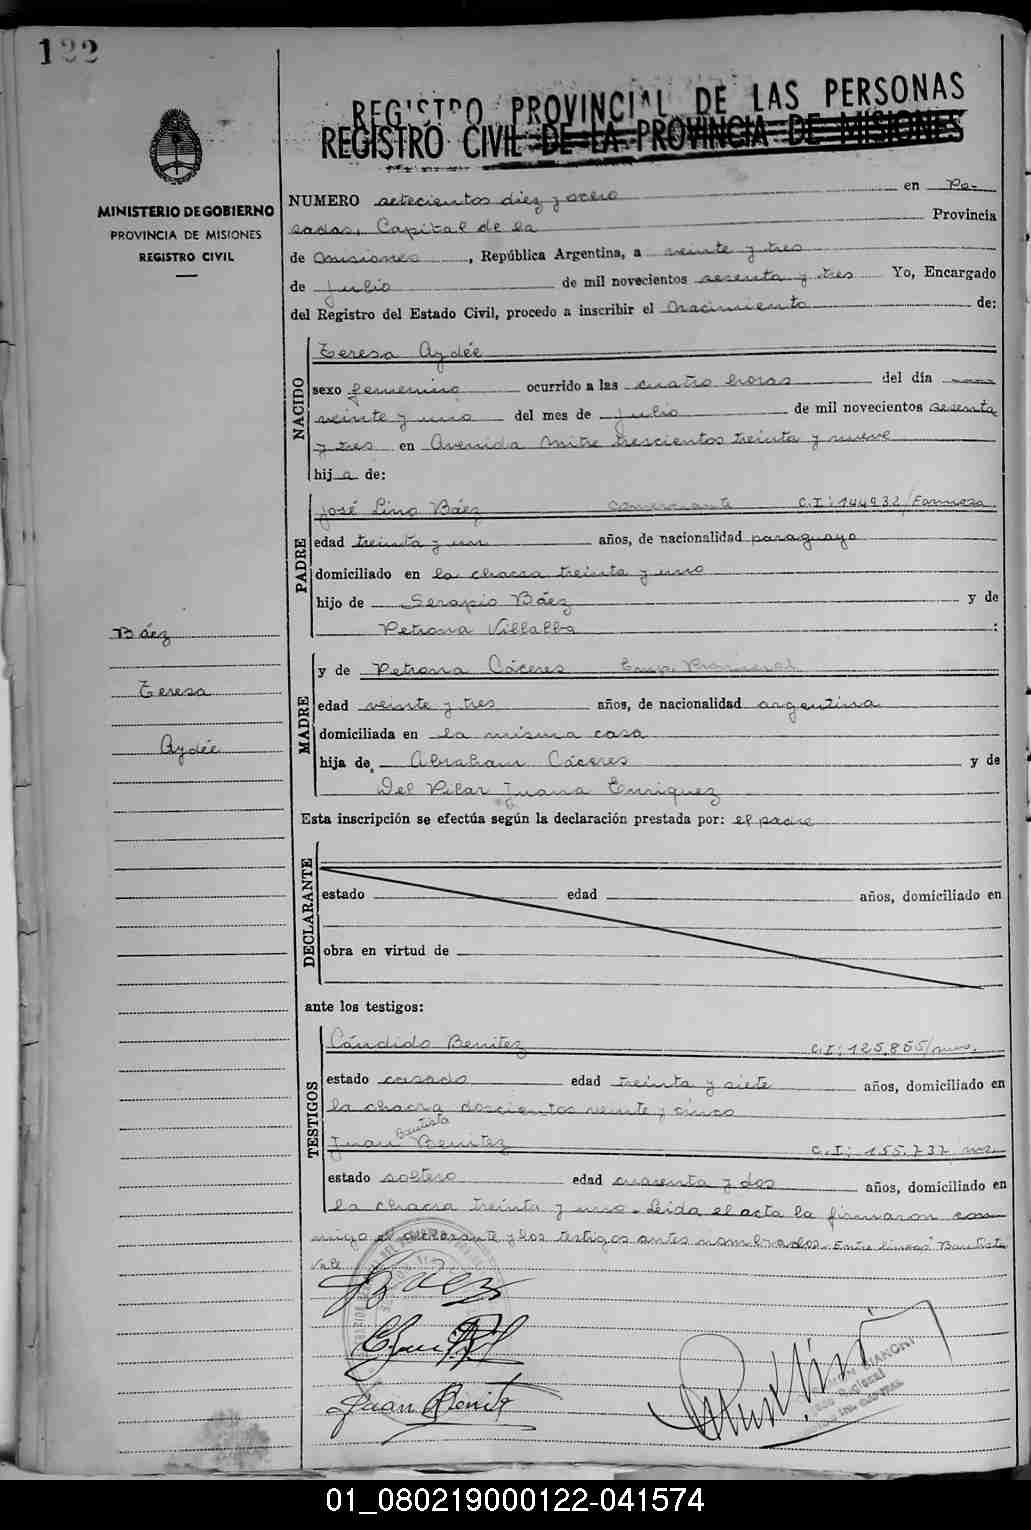 122
REGISTRO PROVINCIAL DE LAS PERSONAS
REGISTRO CIVIL DE LA PROVINCIA DE MISIONES
MINISTERIO DE GOBIERNO
PROVINCIA DE MISIONES
REGISTRO CIVIL
NUMERO setecientos diez y ocho en Po-
sadas, Capital de la Provincia
de Misiones, República Argentina, a veinte y tres
de julio de mil novecientos sesenta y tres Yo, Encargado
del Registro del Estado Civil, procedo a inscribir el nacimiento de:
NACIDO
Teresa Aydée
sexo femenino ocurrido a las cuatro horas del día
veinte y uno del mes de julio de mil novecientos sesenta
y tres en Avenida Mitre trescientos treinta y nueve
hija de:
PADRE
José Lino Báez comerciante C.I: 144932/Formosa
edad treinta y un años, de nacionalidad paraguayo
domiciliado en la chacra treinta y uno
hijo de Serapio Báez y de
Petrona Villalba :
Báez
Teresa
Aydée
MADRE
y de Petrona Cáceres
edad veinte y tres años, de nacionalidad argentina
domiciliada en la misma casa
hija de Abraham Cáceres y de
Del Pilar Juana Enriquez
Esta inscripción se efectúa según la declaración prestada por: el padre
DECLARANTE
estado edad años, domiciliado en
obra en virtud de
ante los testigos:
TESTIGOS
Cándido Benitez C.I: 125.865/mnes.
estado casado edad treinta y siete años, domiciliado en
la chacra doscientos veinte y cinco
Bautista
Juan Benitez C.I: 155.737
estado soltero edad cuarenta y dos años, domiciliado en
la chacra treinta y uno. Leida el acta la firmaron con-
migo el declarante y los testigos antes nombrados. Entre lineas "Bautista"
vale
Báez
Juan Benit
01_080219000122-041574